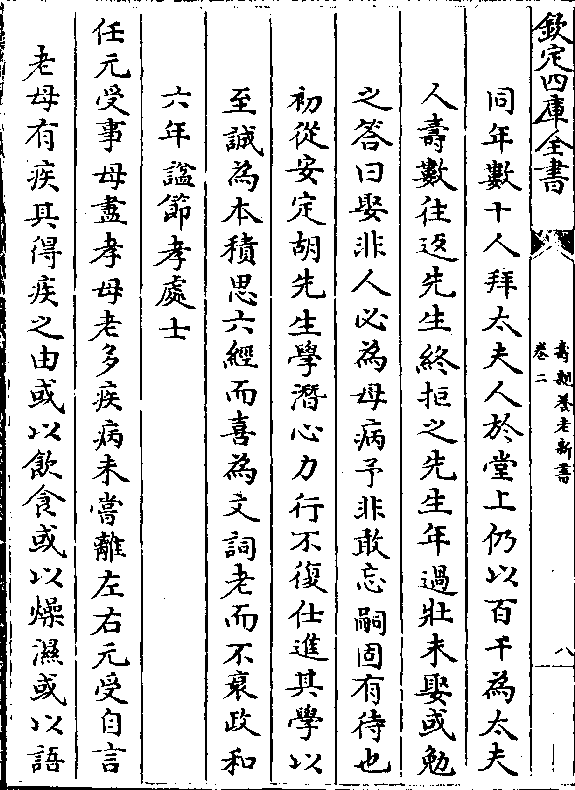 欽定四庫全書
壽親養老新書
卷二
八
同年數十人拜太夫人於堂上仍以百千為太夫
人壽數往返先生終拒之先生年過壯未娶或勉
之答曰娶非人必為母病予非敢忘嗣固有待也
初從安定胡先生學潛心力行不復仕進其學以
至誠為本積思六經而喜為文詞老而不衰政和
六年謚節孝處士
任元受事母盡孝母老多疾病未嘗離左右元受自言
老母有疾其得疾之由或以飲食或以燥濕或以語